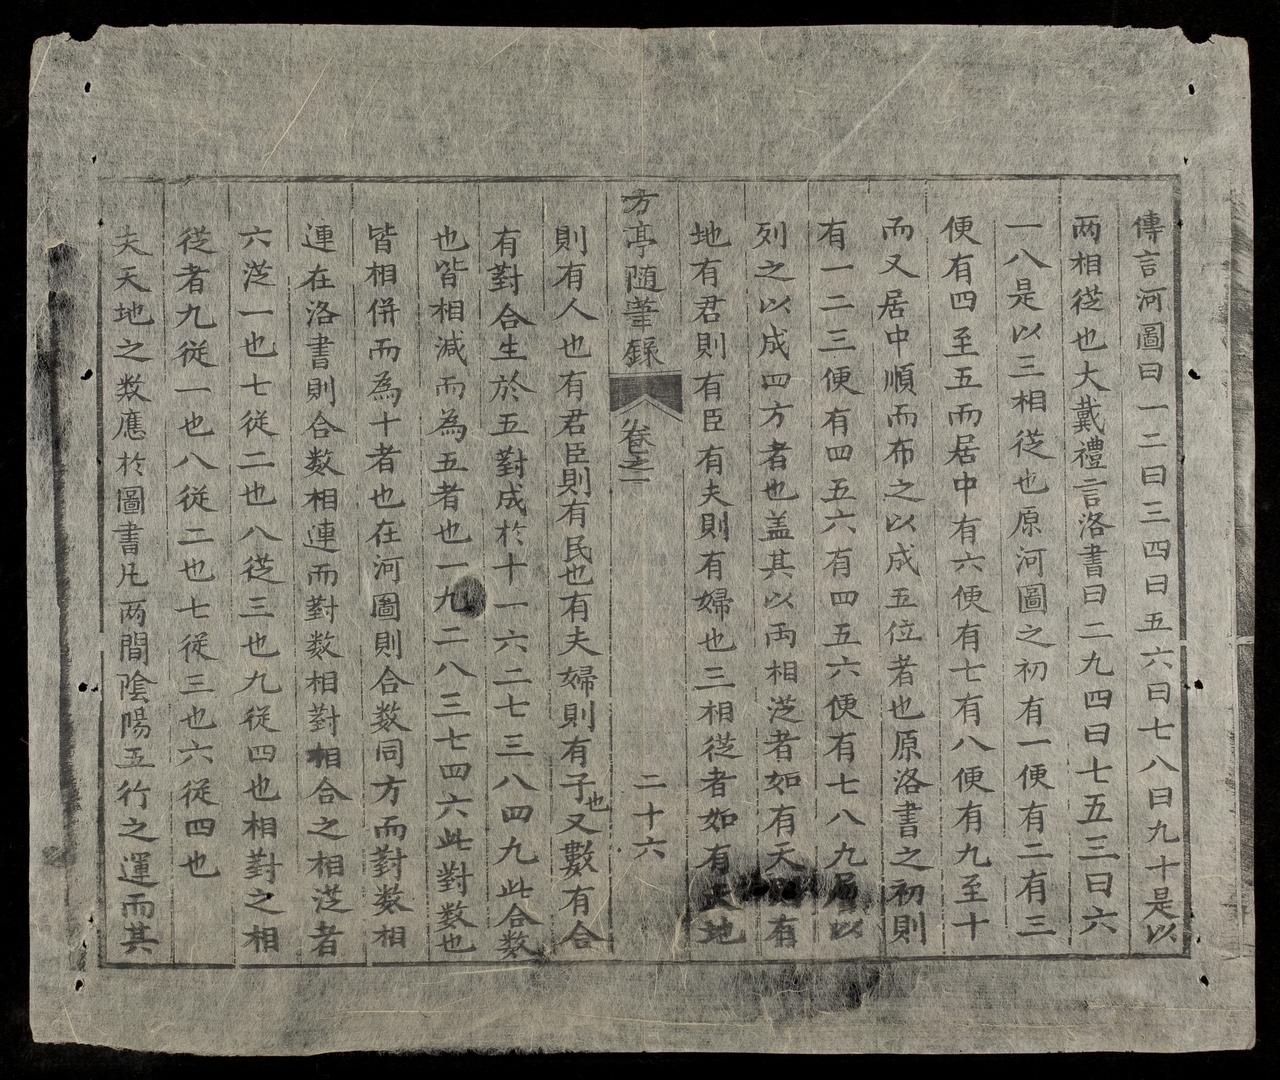 傳言河圖曰一二曰三四曰五六曰七八曰九十是以
两相從也大戴禮言洛書曰二九四曰七五三曰六
一八是以三相從也原河圖之初有一便有二有三
便有四至五而居中有六便有七有八便有九至十
而又居中順而布之以成五位者也原洛書之初則
有一二三便有四五六有四五六便有七八九層以
列之以成四方者也盖其以両相從者如有天則有
地有君則有臣有夫則有婦也三相從者如有天地
方亭随筆録 卷之一 二十六
則有人也有君臣則有民也有夫婦則有子也又數有合
有對合生於五對成於十一六二七三八四九此合数
也皆相減而為五者也一九二八三七四六此對数也
皆相併而為十者也在河圖則合数同方而對数相
連在洛書則合数相連而對数相對相合之相從者
六從一也七従二也八從三也九従四也相對之相
從者九従一也八従二也七従三也六従四也
夫天地之数應於圖書凡两間陰陽五行之運而其